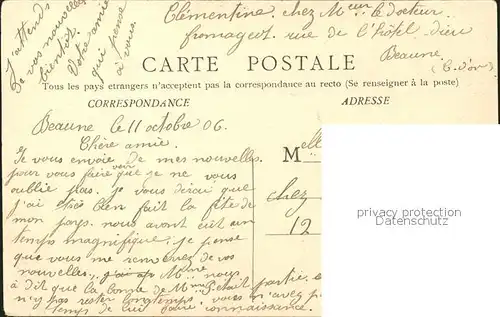 Clémentine chez Mr le docteur
fromageot rue de l'hôtel dieu
Beaune
(C. d'or)
J'attends
de vos nouvelles
bientôt
Votre amie
qui pense
à vous.
CARTE POSTALE
Tous les pays étrangers n'acceptent pas la correspondance au recto (Se renseigner à la poste)
CORRESPONDANCE
ADRESSE
Beaune le 11 octobre 06.
Chère amie.
Je vous envoie de mes nouvelles
pour vous faire voir que je ne vous
oublie pas. je vous dirai que
j'ai bien fait la fête de
mon pays. nous avons eut un
temps magnifique. je pense
que vous me renverez de vos
nouvelles. Mme nous
à dit que la bonne de Mme était partie
n'y pas rester longtemps. vous n'avez p
temps de lui faire connaissance.
Melle
chez
12
privacy protection
Datenschutz